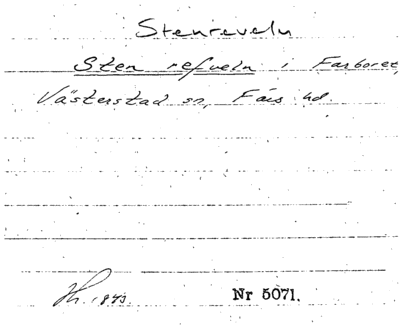 Stenreveln
Sten refveln i Farboret,
Västerstad sn, Färs hd.
Nr 5071.